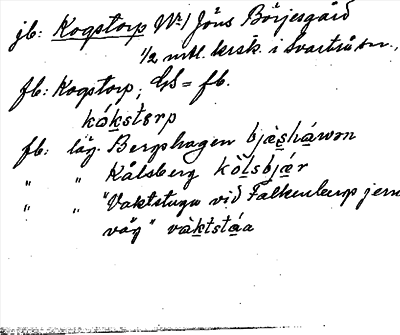 jb: Kogstorp Nr 1 Jöns Börjesgård
1/2 mtl. kersk. i Svartrå sn.,
fb: Kogstorp; GS = fb.
kókstərp
fb: läg. Berghagen bjæ̀sháwən
" " Kålsberg kò̤lsbjǽr
" " "Vaktstuga vid Falkenberg jern
väg" vàktstáa